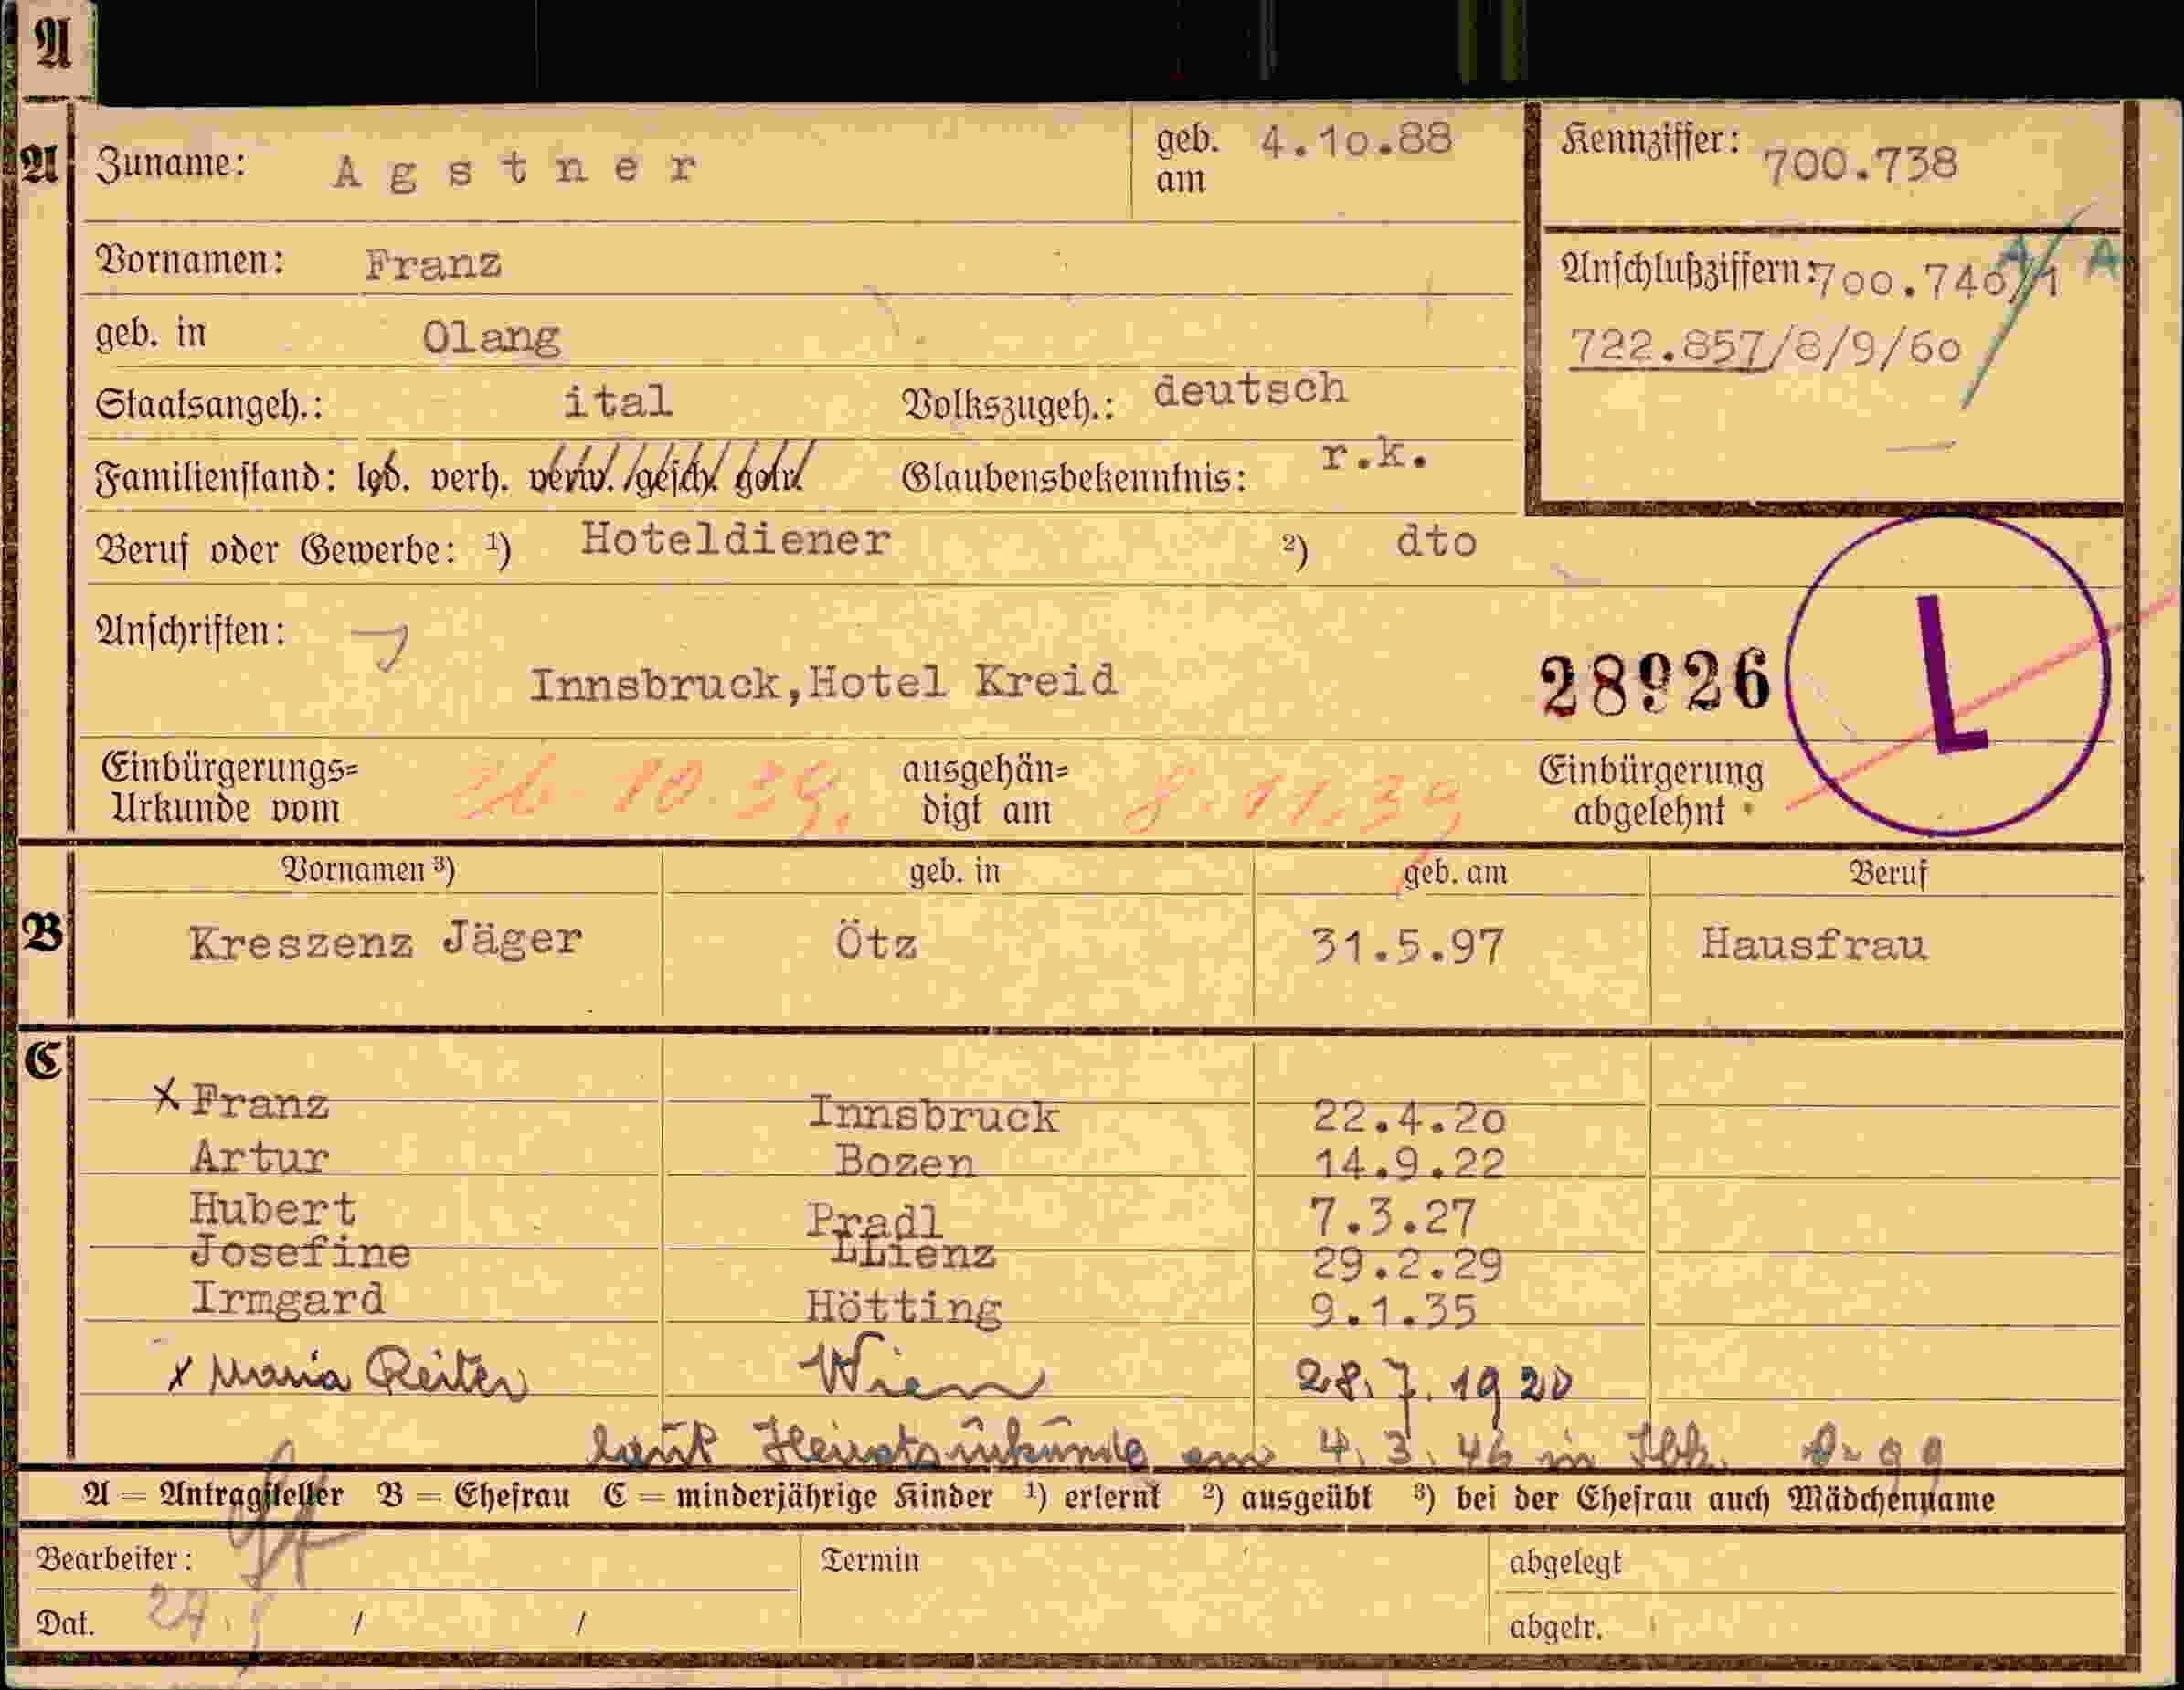 A
A
Zuname: Agstner geb. am 4.10.88 Kennziffer: 700.738
Vornamen: Franz Anschlußziffern: 700.740/1 A A
geb. in Olang 722.857/8/9/60
Staatsangeh.: ital Volkszugeh.: deutsch
Familienstand: led. verh. verw. gesch. Glaubensbekenntnis: r.k.
Beruf oder Gewerbe: ¹) Hoteldiener ²) dto
Anschriften:
Innsbruck,Hotel Kreid 28926 L
Einbürgerungs= Urkunde vom 26.10.39. ausgehän= digt am 8.11.39 Einbürgerung abgelehnt
Vornamen ³) geb. in geb. am Beruf
B Kreszenz Jäger Ötz 31.5.97 Hausfrau
C
x Franz Innsbruck 22.4.20
Artur Bozen 14.9.22
Hubert Pradl 7.3.27
Josefine LLienz 29.2.29
Irmgard Hötting 9.1.35
x Maria Reiter Wien 28.7.1920
laut Heiratsurkunde am 4.3.46 in Ibk.
A = Antragsteller B = Ehefrau C = minderjährige Kinder ¹) erlernt ²) ausgeübt ³) bei der Ehefrau auch Mädchenname
Bearbeiter: Termin abgelegt
Dat. / / abgetr.